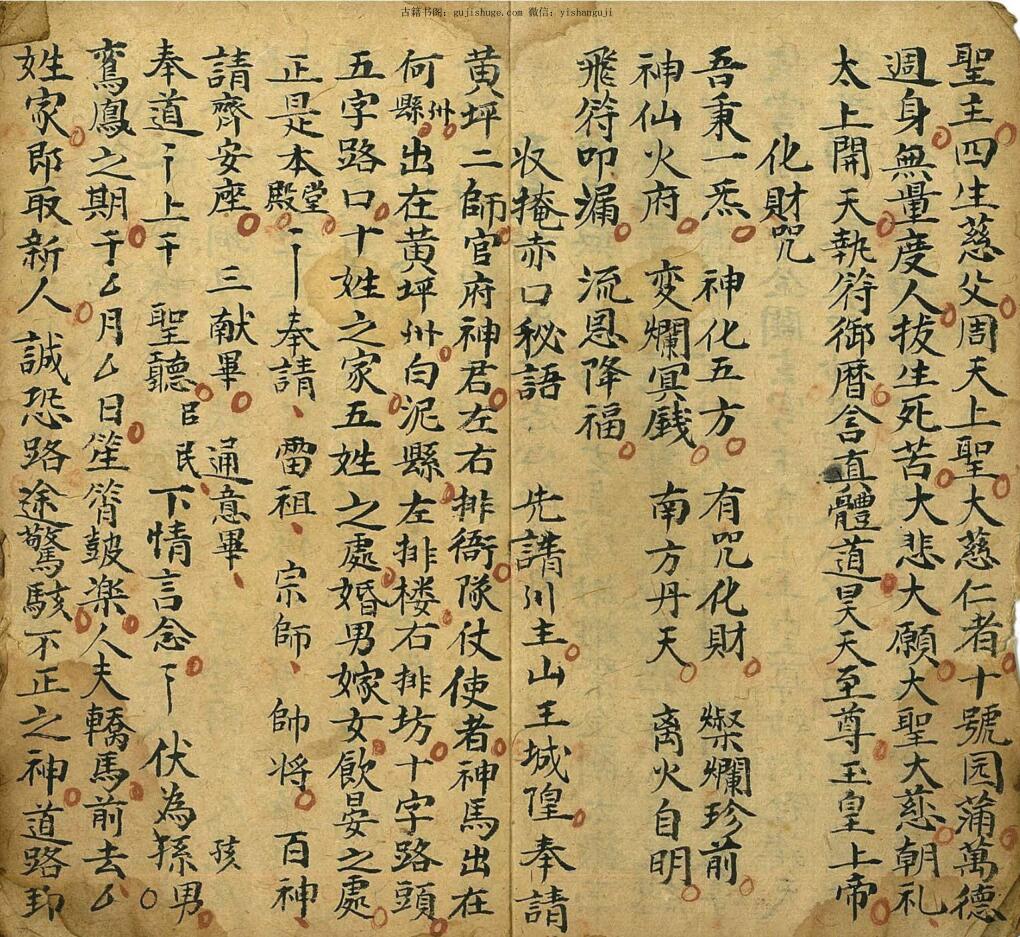 古籍书阁：gujishuge.com 微信：yishanguji
聖主四生慈父周天上聖大慈仁者十號园蒲萬德
週身無量度人拔生死苦大悲大願大聖大慈朝礼
太上開天執符御曆含真體道昊天至尊玉皇上帝
化財咒
吾秉一炁 神化五方 有咒化財 燦爛珍前
神仙火府 変爛冥銭 南方丹天 离火自明
飛符叩漏 流恩降福
收掩赤口秘語 先請川主山王城隍奉請
黄坪二師官府神君左右排衙隊仗使者神馬出在
何州縣出在黄坪州白泥縣左排楼右排坊十字路頭
五字路口十姓之家五姓之處婚男嫁女飲晏之處
正是本堂殿 奉請、雷祖、宗師、帥将 百神
請齊安座 三献畢 通意畢、
奉道 上千 聖聽臣民下情言念 伏為孫男孩
鸞鳳之期千厶月厶日笙簫皷楽人夫轎馬前去厶
姓家郎取新人誠恐路途驚駭不正之神道路卽